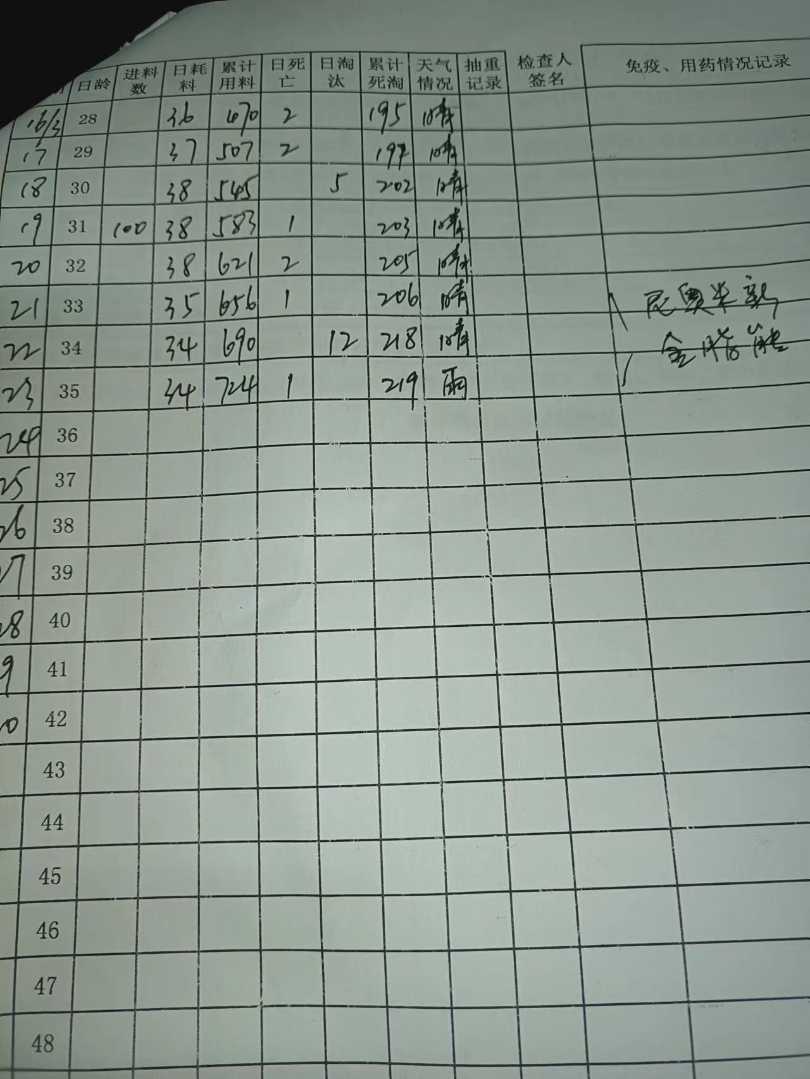 日龄 进料数 日耗料 累计用料 日死亡 日淘汰 累计死淘 天气情况 抽重记录 检查人签名 免疫、用药情况记录
16/3 28 36 470 2 195 晴
17 29 37 507 2 197 晴
18 30 38 545 5 202 晴
19 31 100 38 583 1 203 晴
20 32 38 621 2 205 晴
21 33 35 656 1 206 晴
22 34 34 690 12 218 晴
23 35 34 724 1 219 雨
24 36
25 37
26 38
27 39
28 40
9 41
0 42
43
44
45
46
47
48